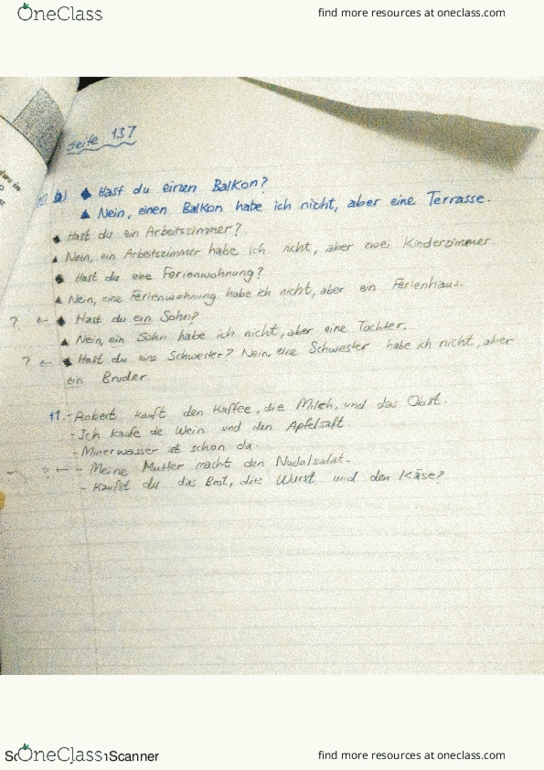 OneClass find more resources at oneclass.com
Seite 137
10. b) ◆ Hast du einen Balkon?
▲ Nein, einen Balkon habe ich nicht, aber eine Terrasse.
◆ Hast du ein Arbeitszimmer?
▲ Nein, ein Arbeitszimmer habe ich nicht, aber zwei Kinderzimmer
◆ Hast du eine Ferienwohnung?
▲ Nein, eine Ferienwohnung habe ich nicht, aber ein Ferienhaus.
? ← ◆ Hast du ein Sohn?
▲ Nein, ein Sohn habe ich nicht, aber eine Tochter.
? ← ◆ Hast du eine Schwester? Nein, eine Schwester habe ich nicht, aber
ein Bruder
11. - Robert kauft den Kaffee, die Milch, und das Obst.
- Ich kaufe de Wein und den Apfelsaft
- Minerwasser ist schon da.
? ← - Meine Mutter macht den Nudelsalat.
- Kaufst du das Brot, die Wurst und den Käse?
OneClass Scanner find more resources at oneclass.com